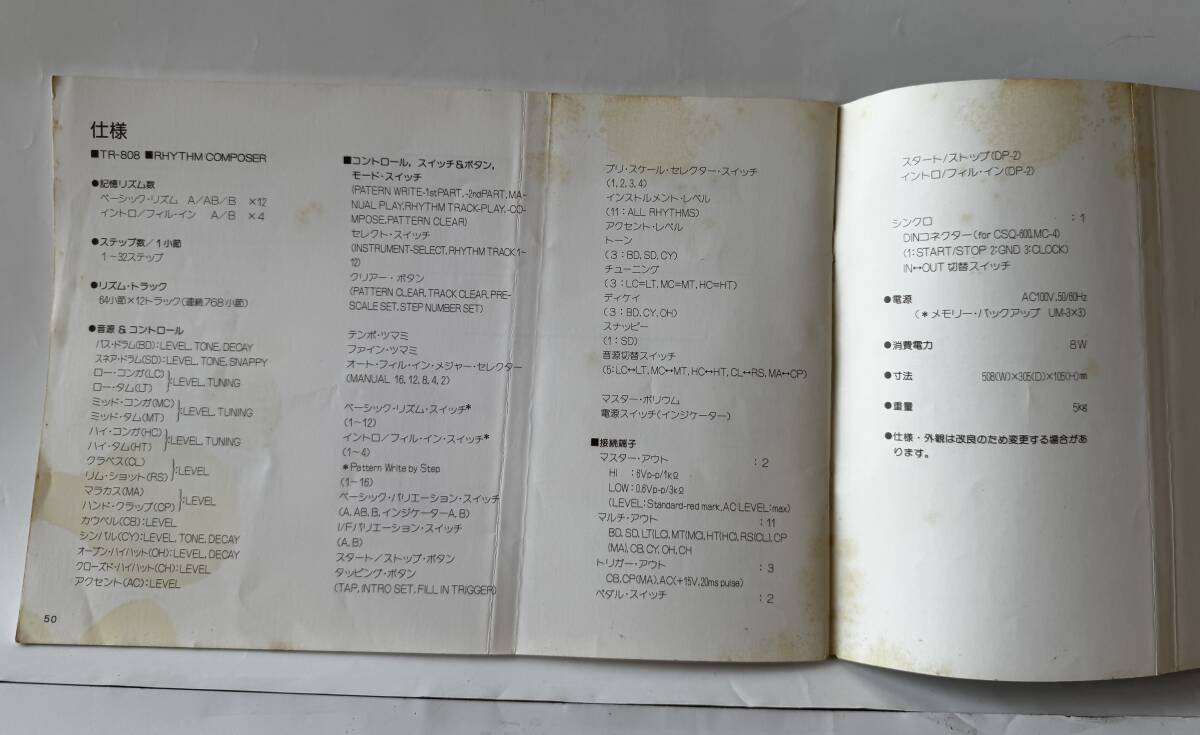 仕様
■TR-808 ■RHYTHM COMPOSER
●記憶リズム数
ベーシック・リズム A/AB/B ×12
イントロ/フィル・イン A/B ×4
●ステップ数/1小節
1~32ステップ
●リズム・トラック
64小節×12トラック(連続768小節)
●音源 & コントロール
バス・ドラム(BD):LEVEL, TONE, DECAY
スネア・ドラム(SD):LEVEL, TONE, SNAPPY
ロー・コンガ(LC)
ロー・タム(LT) }:LEVEL, TUNING
ミッド・コンガ(MC)
ミッド・タム(MT) }:LEVEL, TUNING
ハイ・コンガ(HC)
ハイ・タム(HT) }:LEVEL, TUNING
クラベス(CL)
リム・ショット(RS) }:LEVEL
マラカス(MA)
ハンド・クラップ(CP) }:LEVEL
カウベル(CB):LEVEL
シンバル(CY):LEVEL, TONE, DECAY
オープン・ハイハット(OH):LEVEL, DECAY
クローズド・ハイハット(CH):LEVEL
アクセント(AC):LEVEL
50
■コントロール, スイッチ&ボタン,
モード・スイッチ
(PATERN WRITE-1stPART, -2ndPART, MA-
NUAL PLAY, RHYTHM TRACK-PLAY, -CO-
MPOSE, PATTERN CLEAR)
セレクト・スイッチ
(INSTRUMENT-SELECT, RHYTHM TRACK 1~
12)
クリアー・ボタン
(PATTERN CLEAR, TRACK CLEAR, PRE-
SCALE SET, STEP NUMBER SET)
テンポ・ツマミ
ファイン・ツマミ
オート・フィル・イン・メジャー・セレクター
(MANUAL 16, 12, 8, 4, 2)
ベーシック・リズム・スイッチ*
(1~12)
イントロ/フィル・イン・スイッチ*
(1~4)
*Pattern Write by Step
(1~16)
ベーシック・バリエーション・スイッチ
(A, AB, B, インジケーターA, B)
I/Fバリエーション・スイッチ
(A, B)
スタート/ストップ・ボタン
タッピング・ボタン
(TAP, INTRO SET, FILL IN TRIGGER)
プリ・スケール・セレクター・スイッチ
(1, 2, 3, 4)
インストルメント・レベル
(11:ALL RHYTHMS)
アクセント・レベル
トーン
(3:BD, SD, CY)
チューニング
(3:LC=LT, MC=MT, HC=HT)
ディケイ
(3:BD, CY, OH)
スナッピー
(1:SD)
音源切替スイッチ
(5:LC↔LT, MC↔MT, HC↔HT, CL↔RS, MA↔CP)
マスター・ボリウム
電源スイッチ(インジケーター)
■接続端子
マスター・アウト :2
HI :6Vp-p/1kΩ
LOW:0.6Vp-p/3kΩ
(LEVEL:Standard-red mark, AC LEVEL:max)
マルチ・アウト :11
BD, SD, LT(LC), MT(MC), HT(HC), RS(CL), CP
(MA), CB, CY, OH, CH
トリガー・アウト :3
CB, CP(MA), AC(+15V, 20ms pulse)
ペダル・スイッチ :2
スタート/ストップ(DP-2)
イントロ/フィル・イン(DP-2)
シンクロ :1
DINコネクター(for CSQ-600, MC-4)
(1:START/STOP 2:GND 3:CLOCK)
IN↔OUT 切替スイッチ
●電源 AC100V, 50/60Hz
(*メモリー・バックアップ UM-3×3)
●消費電力 8W
●寸法 508(W)×305(D)×105(H)mm
●重量 5kg
●仕様・外観は改良のため変更する場合があ
ります。